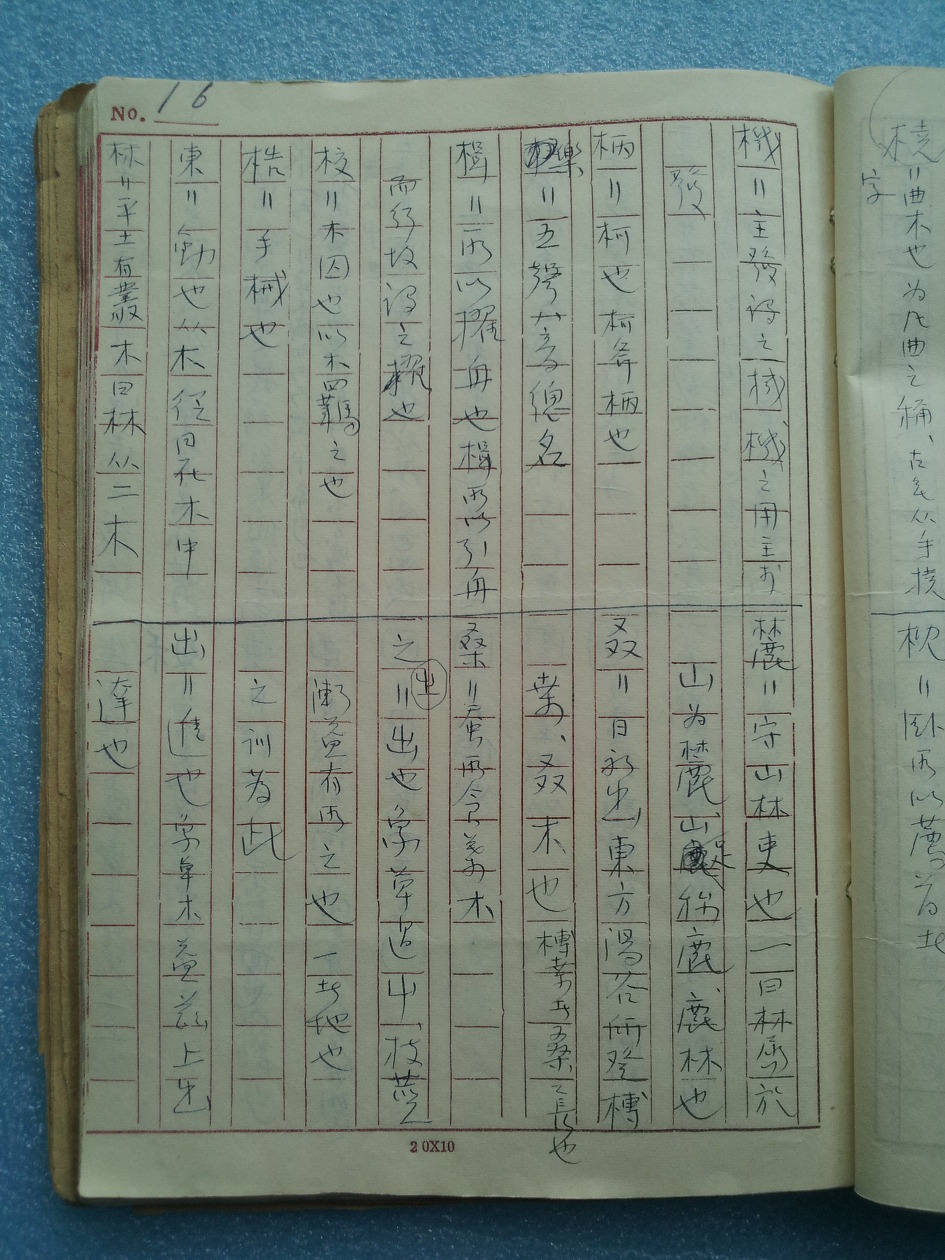 No. 16
機〃主發謂之機機之用主於
發
柄〃柯也柯斧柄也
樂〃五聲八音總名
楫〃所以擢舟也楫所以引舟
而行故謂之櫂也
校〃木囚也以木羈之也
梏〃手械也
東〃動也从木從日在木中
林〃平土有叢木曰林从二木
麓〃守山林吏也一曰林屬於
山為麓山足稱麓麓林也
叒〃日初出東方湯谷所登榑
桑、叒木也榑桑者桑之長也
桑〃蚕所食葉木
之〃出也象草過屮、枝莖
㞢
漸益有所之也一者地也
之訓為此
出〃進也象草木益茲上出
達也
橈〃曲木也为凡曲之稱、古無从手撓
字
枕〃卧所以薦首者
20X10